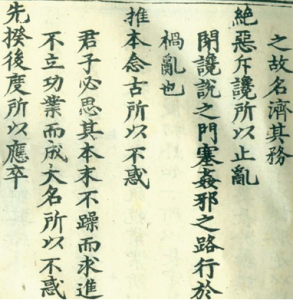 之故名濟其務
絕惡斥讒所以止亂
閉讒說之門塞姦邪之路行於
禍亂也
推本念古所以不惑
君子必思其本末不躁而求進
不立功業而成大名所以不惑
先揆後度所以應卒